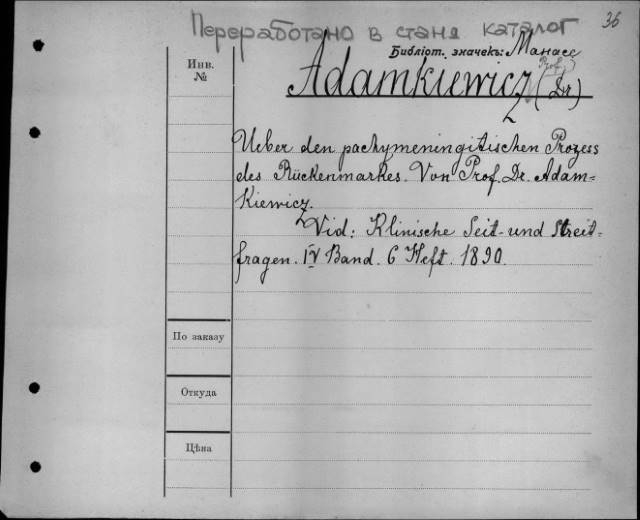 36
Переработано в станд каталог
Библіот. значекъ: Манасс
Инв.
№
Prof.
Adamkiewicz (Dr)
Ueber den pachymeningitischen Prozess
des Rückenmarkes. Von Prof. Dr. Adam=
Kiewicz.
Vid: Klinische Zeit- und Streit=
fragen. IV Band. 6 Heft. 1890.
По заказу
Откуда
Цѣна